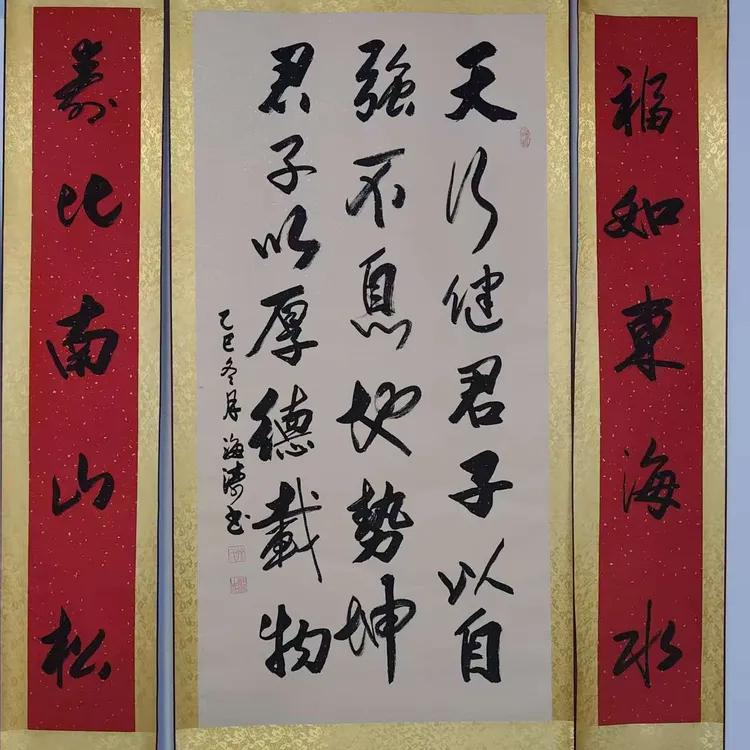 福如東海水
天行健君子以自
強不息地勢坤
君子以厚德載物
乙巳冬月海濤書
壽比南山松